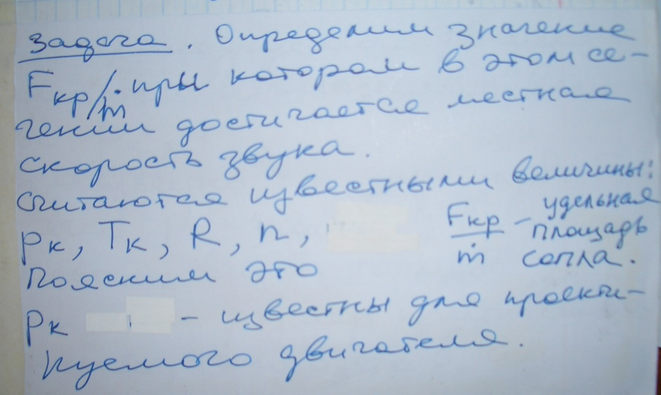 Задача. Определим значение
Fкр/ṁ при котором в этом се-
чении достигается местная
скорость звука.
Считаются известными величины:
pк, Tк, R, n, Fкр/ṁ - удельная площадь сопла.
Поясним это
pк - известны для проекти-
руемого двигателя.